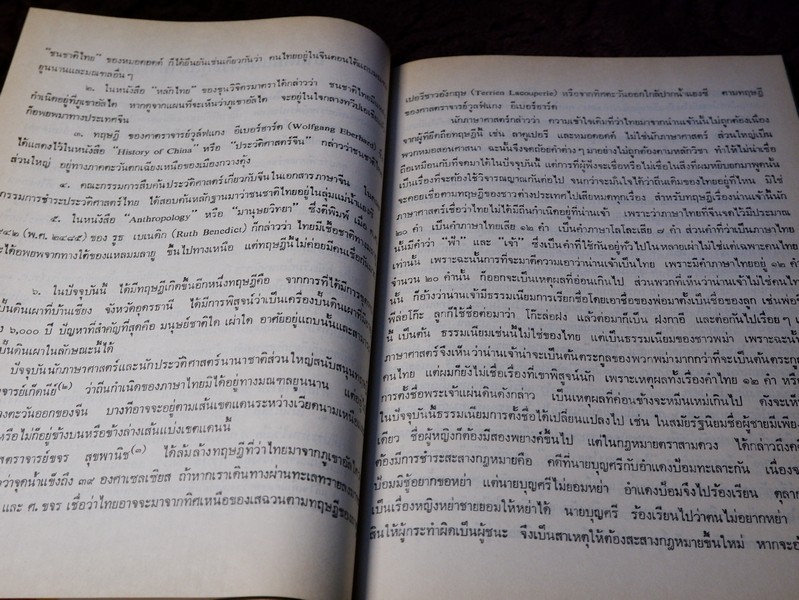 "ชนชาติไทย" ของหมอดอดด์ ก็ได้ยืนยันเช่นเดียวกันว่า คนไทยอยู่ในจีนตอนใต้แถบมณฑล
ยูนนานและมณฑลอื่นๆ
๒. ในหนังสือ "หลักไทย" ของขุนวิจิตรมาตราได้กล่าวว่า ชนชาติไทยมี
กำเนิดอยู่ที่ภูเขาอัลไต หากดูจากแผนที่จะเห็นว่าภูเขาอัลไต จะอยู่ในใจกลางทวีปเอเชีย
ก็อพยพมาทางประเทศจีน
๓. ทฤษฎี ของศาสตราจารย์วูล์ฟแกง อีเบอร์ฮาร์ด (Wolfgang Eberhard)
ได้แสดงไว้ในหนังสือ "History of China" หรือ "ประวัติศาสตร์จีน" กล่าวว่าชนชาติไทย
ส่วนใหญ่ อยู่ทางภาคตะวันตกเฉียงเหนือของเมืองกวางตุ้ง
๔. คณะกรรมการสืบค้นประวัติศาสตร์ไทยเกี่ยวกับจีนในเอกสารภาษาจีน
กรรมการชำระประวัติศาสตร์ไทย ได้สอบค้นหลักฐานมาว่าชนชาติไทยอยู่ในลุ่มแม่น้ำ
๕. ในหนังสือ "Anthropology" หรือ "มานุษยวิทยา" ซึ่งตีพิมพ์ เมื่อ
๙๔๒ (พ.ศ. ๒๔๘๕) ของ รูธ เบเนดิก (Ruth Benedict) กล่าวว่า ไทยมีเชื้อชาติทาง
ะได้อพยพจากทางใต้ของแหลมมลายู ขึ้นไปทางเหนือ แต่ทฤษฎีนี้ไม่ค่อยมีคนเชื่อกัน
๖. ในปัจจุบันนี้ ได้มีทฤษฎีเกิดขึ้นอีกหนึ่งทฤษฎีคือ จากการที่ได้มีการขุด
ปั้นดินเผาที่บ้านเชียง จังหวัดอุดรธานี ได้มีการพิสูจน์ว่าเป็นเครื่องปั้นดินเผาที่มี
ง ๖,๐๐๐ ปี ปัญหาที่สำคัญที่สุดคือ มนุษย์ชาติใด เผ่าใด อาศัยอยู่แถบนั้นและสามารถ
ปั้นดินเผาในลักษณะนี้ได้
ปัจจุบันนักภาษาศาสตร์และนักประวัติศาสตร์นานาชาติส่วนใหญ่สนับสนุนทฤษฎี
จารย์เก็ดนีย์(๒) ว่าถิ่นกำเนิดของภาษาไทยมิได้อยู่ทางมณฑลยูนนาน แต่อยู่
งตะวันออกของจีน บางทีอาจจะอยู่ตามเส้นเขตแดนระหว่างเวียดนามเหนือ
หรือไม่ก็อยู่ข้างบนหรือข้างล่างเส้นแบ่งเขตแดนนี้
สตราจารย์ขจร สุขพานิช(๓) ได้ล้มล้างทฤษฎีที่ว่าไทยมาจากภูเขาอัลไต
ว่าจุดน้ำแข็งถึง ๓๙ องศาเซลเซียส ถ้าหากเราเดินทางผ่านทะเลทราย
และ ศ. ขจร เชื่อว่าไทยอาจจะมาจากทิศเหนือของเสฉวนตามทฤษฎีของ
เปอรีชาวอังกฤษ (Terrien Lacouperie) หรือจากทิศตะวันออกใกล้ปากน้ำแยงซี ตามทฤษฎี
ของศาสตราจารย์วูล์ฟแกง อีเบอร์ฮาร์ด
นักภาษาศาสตร์กล่าวว่า ความเข้าใจเดิมที่ว่าไทยมาจากน่านเจ้านั้นไม่ถูกต้องเนื่อง
จากผู้ที่คิดถือทฤษฎีนี้ เช่น ลาคูเปอรี และหมอดอดด์ ไม่ใช่นักภาษาศาสตร์ ส่วนใหญ่เป็น
พวกหมอสอนศาสนา ฉะนั้นจึงจดถ้อยคำต่างๆ มาอย่างไม่ถูกต้องตามหลักวิชา ทำให้ไม่น่าเชื่อ
ถือเหมือนกับที่จดมาได้ในปัจจุบันนี้ แต่การที่ผู้ฟังจะเชื่อหรือไม่เชื่อในสิ่งที่ผมหยิบยกมาพูดนั้น
เป็นเรื่องที่จะต้องใช้วิจารณญาณกันต่อไป จนกว่าจะมั่นใจได้ว่าถิ่นเดิมของไทยอยู่ที่ไหน มิใช่
จะคอยเชื่อตามทฤษฎีของชาวต่างประเทศไปเสียหมดทุกเรื่อง สำหรับทฤษฎีเรื่องน่านเจ้านี้นัก
ภาษาศาสตร์เชื่อว่าไทยไม่ได้มีถิ่นกำเนิดอยู่ที่น่านเจ้า เพราะว่าภาษาไทยที่จีนจดไว้มีประมาณ
๒๐ คำ เป็นคำภาษาไทยเสีย ๑๒ คำ เป็นคำภาษาโลโลเสีย ๗ คำ ส่วนคำที่ว่าเป็นภาษาไทย
นั้นมีคำว่า "ฟ้า" และ "เจ้า" ซึ่งเป็นคำที่ใช้กันอยู่ทั่วไปในหลายเผ่าไม่ใช่แต่เฉพาะคนไทย
เท่านั้น เพราะฉะนั้นการที่จะมาตีความเอาว่าน่านเจ้าเป็นไทย เพราะมีคำภาษาไทยอยู่ ๑๒ คำ
จำนวน ๒๐ คำนั้น ก็ออกจะเป็นเหตุผลที่อ่อนเกินไป ส่วนพวกที่เห็นว่าน่านเจ้าไม่ใช่คนไทย
นั้น ก็อ้างว่าน่านเจ้ามีธรรมเนียมการเรียกชื่อโดยเอาชื่อของพ่อมาตั้งเป็นชื่อของลูก เช่นพ่อชื่อ
พีล่อโก๊ะ ลูกก็ใช้ชื่อต่อมาว่า โก๊ะล่อฝง แล้วต่อมาก็เป็น ฝงกาอี และต่อกันไปเรื่อยๆ
นี้ เป็นต้น ธรรมเนียมเช่นนี้ไม่ใช่ของไทย แต่เป็นธรรมเนียมของชาวพม่า เพราะฉะนั้น
ภาษาศาสตร์จึงเห็นว่าน่านเจ้าน่าจะเป็นต้นตระกูลของพวกพม่ามากกว่าที่จะเป็นต้นตระกูล
คนไทย แต่ผมก็ยังไม่เชื่อเรื่องที่เขาพิสูจน์นัก เพราะเหตุผลทั้งเรื่องคำไทย ๑๒ คำ หรือ
การตั้งชื่อพระเจ้าแผ่นดินดังกล่าว เป็นเหตุผลที่ค่อนข้างจะหมิ่นเหม่เกินไป ดังจะเห็น
ในปัจจุบันนี้ธรรมเนียมการตั้งชื่อได้เปลี่ยนแปลงไป เช่น ในสมัยรัฐนิยมชื่อผู้ชายมีเพียง
เดียว ชื่อผู้หญิงก็ต้องมีสองพยางค์ขึ้นไป แต่ในกฎหมายตราสามดวง ได้กล่าวถึง
ต้องมีการชำระสะสางกฎหมายคือ คดีที่นายบุญศรีกับอำแดงป้อมทะเลาะกัน เนื่องจาก
ป้อมมีชู้อยากขอหย่า แต่นายบุญศรีไม่ยอมหย่า อำแดงป้อมจึงไปร้องเรียน ตุลาการ
เป็นเรื่องหญิงหย่าชายยอมให้หย่าได้ นายบุญศรี ร้องเรียนไปว่าตนไม่อยากหย่า
สินให้ผู้กระทำผิดเป็นผู้ชนะ จึงเป็นสาเหตุให้ต้องสะสางกฎหมายขึ้นใหม่ หากจะ